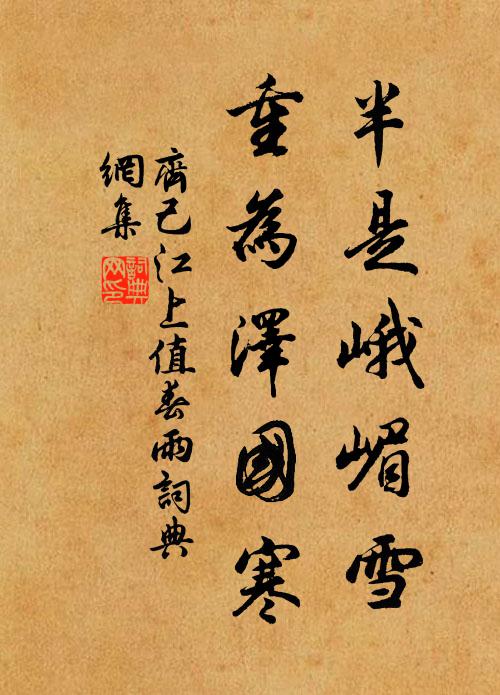 半是峨嵋雪
重為澤國寒
齊己江上值春雨詞典
網集
詞典
网印